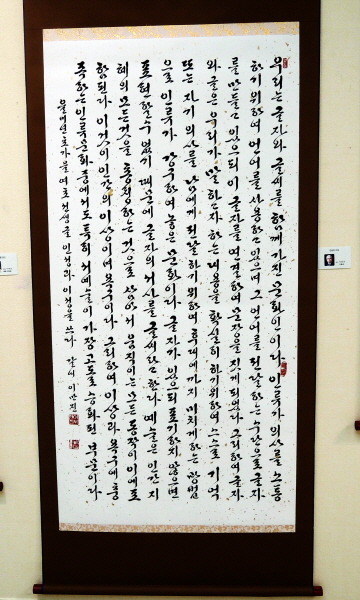 우리는 글자와 글씨를 함께 가진 문화인이다 인류가 의사를 소통
하기 위하여 언어를 사용하고 있으며 그 언어를 전달하는 수단으로 글자
를 만들고 있으되 이 글자를 연결하여 문장을 짓게 되었다 그리하여 글자
와 글은 우리가 말하고자 하는 내용을 확실히 하기 위하여 스스로 기억
또는 자기의 의사를 남에게 전달하기 위하여 후대에까지 미치게 하는 방법
으로 인류가 강구하여 놓은 문화이다 글자가 있으되 표기하지 않으면
표현할 수 없기 때문에 글자의 사를 글씨라고 한다 예술은 인간 지
혜의 모든 것을 표정하는 것으로 움직이는 모든 동작이 이에 포
함된다 이것이 인간의 이상이며 욕구이다 그리하여 이상과 욕구에 충
족하는 인류문화 중에서도 특히 서예술이 가장 고도로 승화된 부분이다
인생과 이정을 쓰다